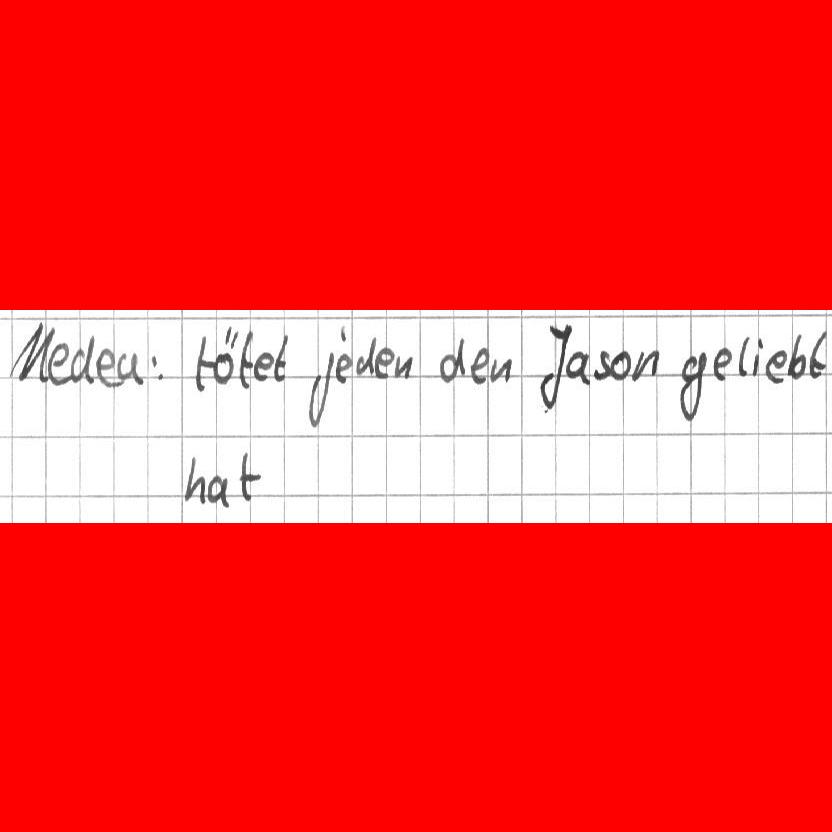 Medea: tötet jeden den Jason geliebt
hat